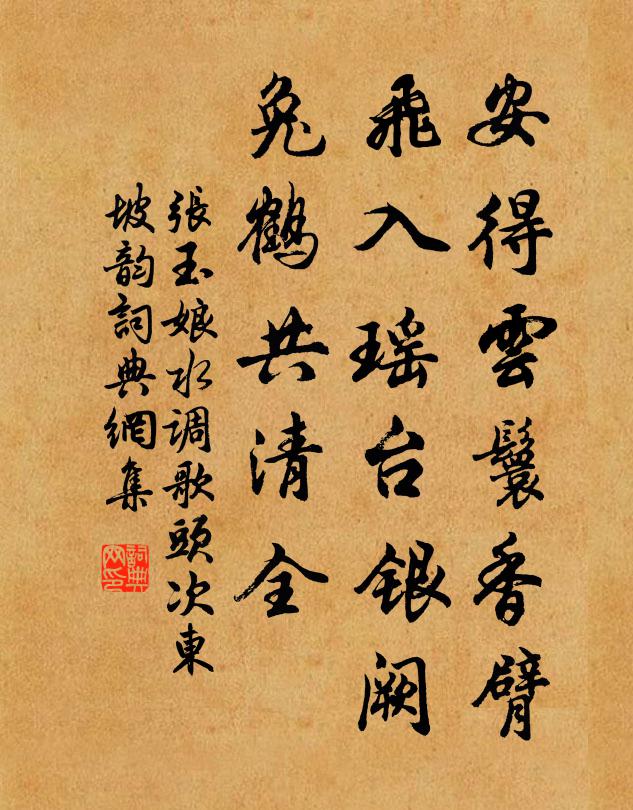 安得雲鬟香臂
飛入瑶台银阙
兔鶴共清全
張玉娘水调歌頭次東
坡韵詞典網集
詞典
网印